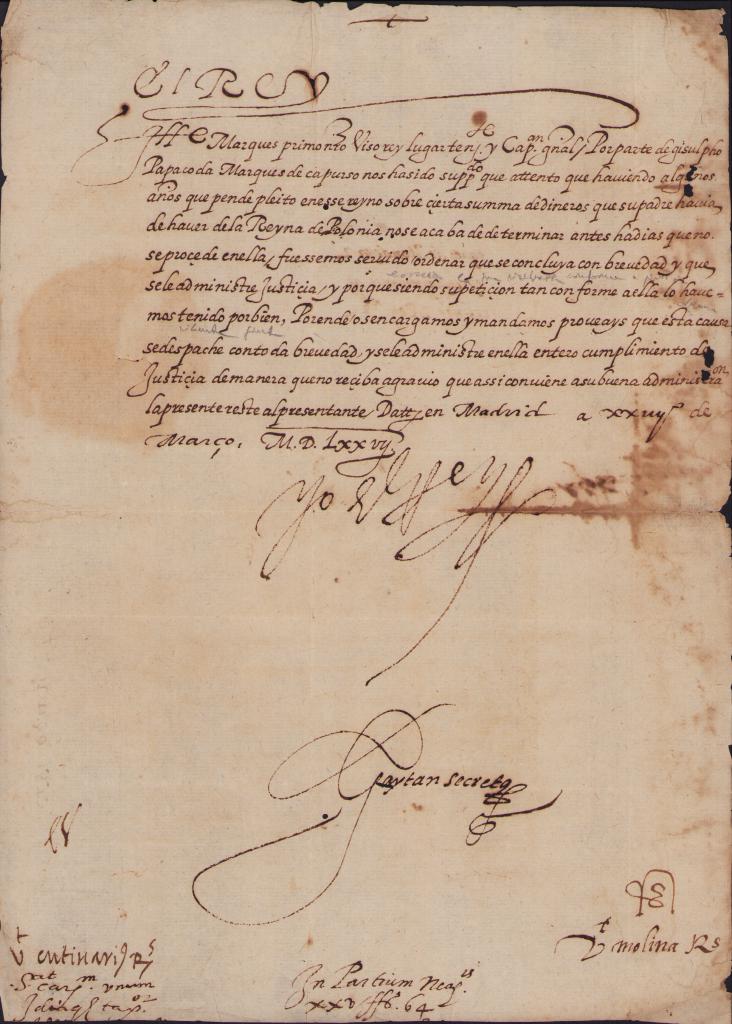 El Rey
Ill.e Marques primo n.ro Viso rey lugarten.te y Cap.an gnāl, Por parte de gisulpho
Papacoda Marques de capurso nos ha sido supp.do que attento que haviendo algunos
años que pende pleito en esse reyno sobre cierta summa de dineros que su padre havia
de haver de la Reyna de Polonia no se acaba de determinar antes ha dias que no
se proçede en ella, fuessemos servido ordenar que se concluya con brevedad y que
se le administre Justicia, y porque siendo su peticion tan conforme a ella lo have=
mos tenido por bien, Por ende os encargamos y mandamos proveays que esta causa
se despache con toda brevedad, y se le administre en ella entero cumplimiento de
Justicia de manera que no reciba agravio que assi conviene a su buena administra.on
la presente reste al presentante Datt. en Madrid a xxvij de
Março, M.D.Lxxvij
Yo el Rey
Gaytan secret.o
V.t cutinari.s R.s
V.t molina R.s
In Partium Neap.is
xxv